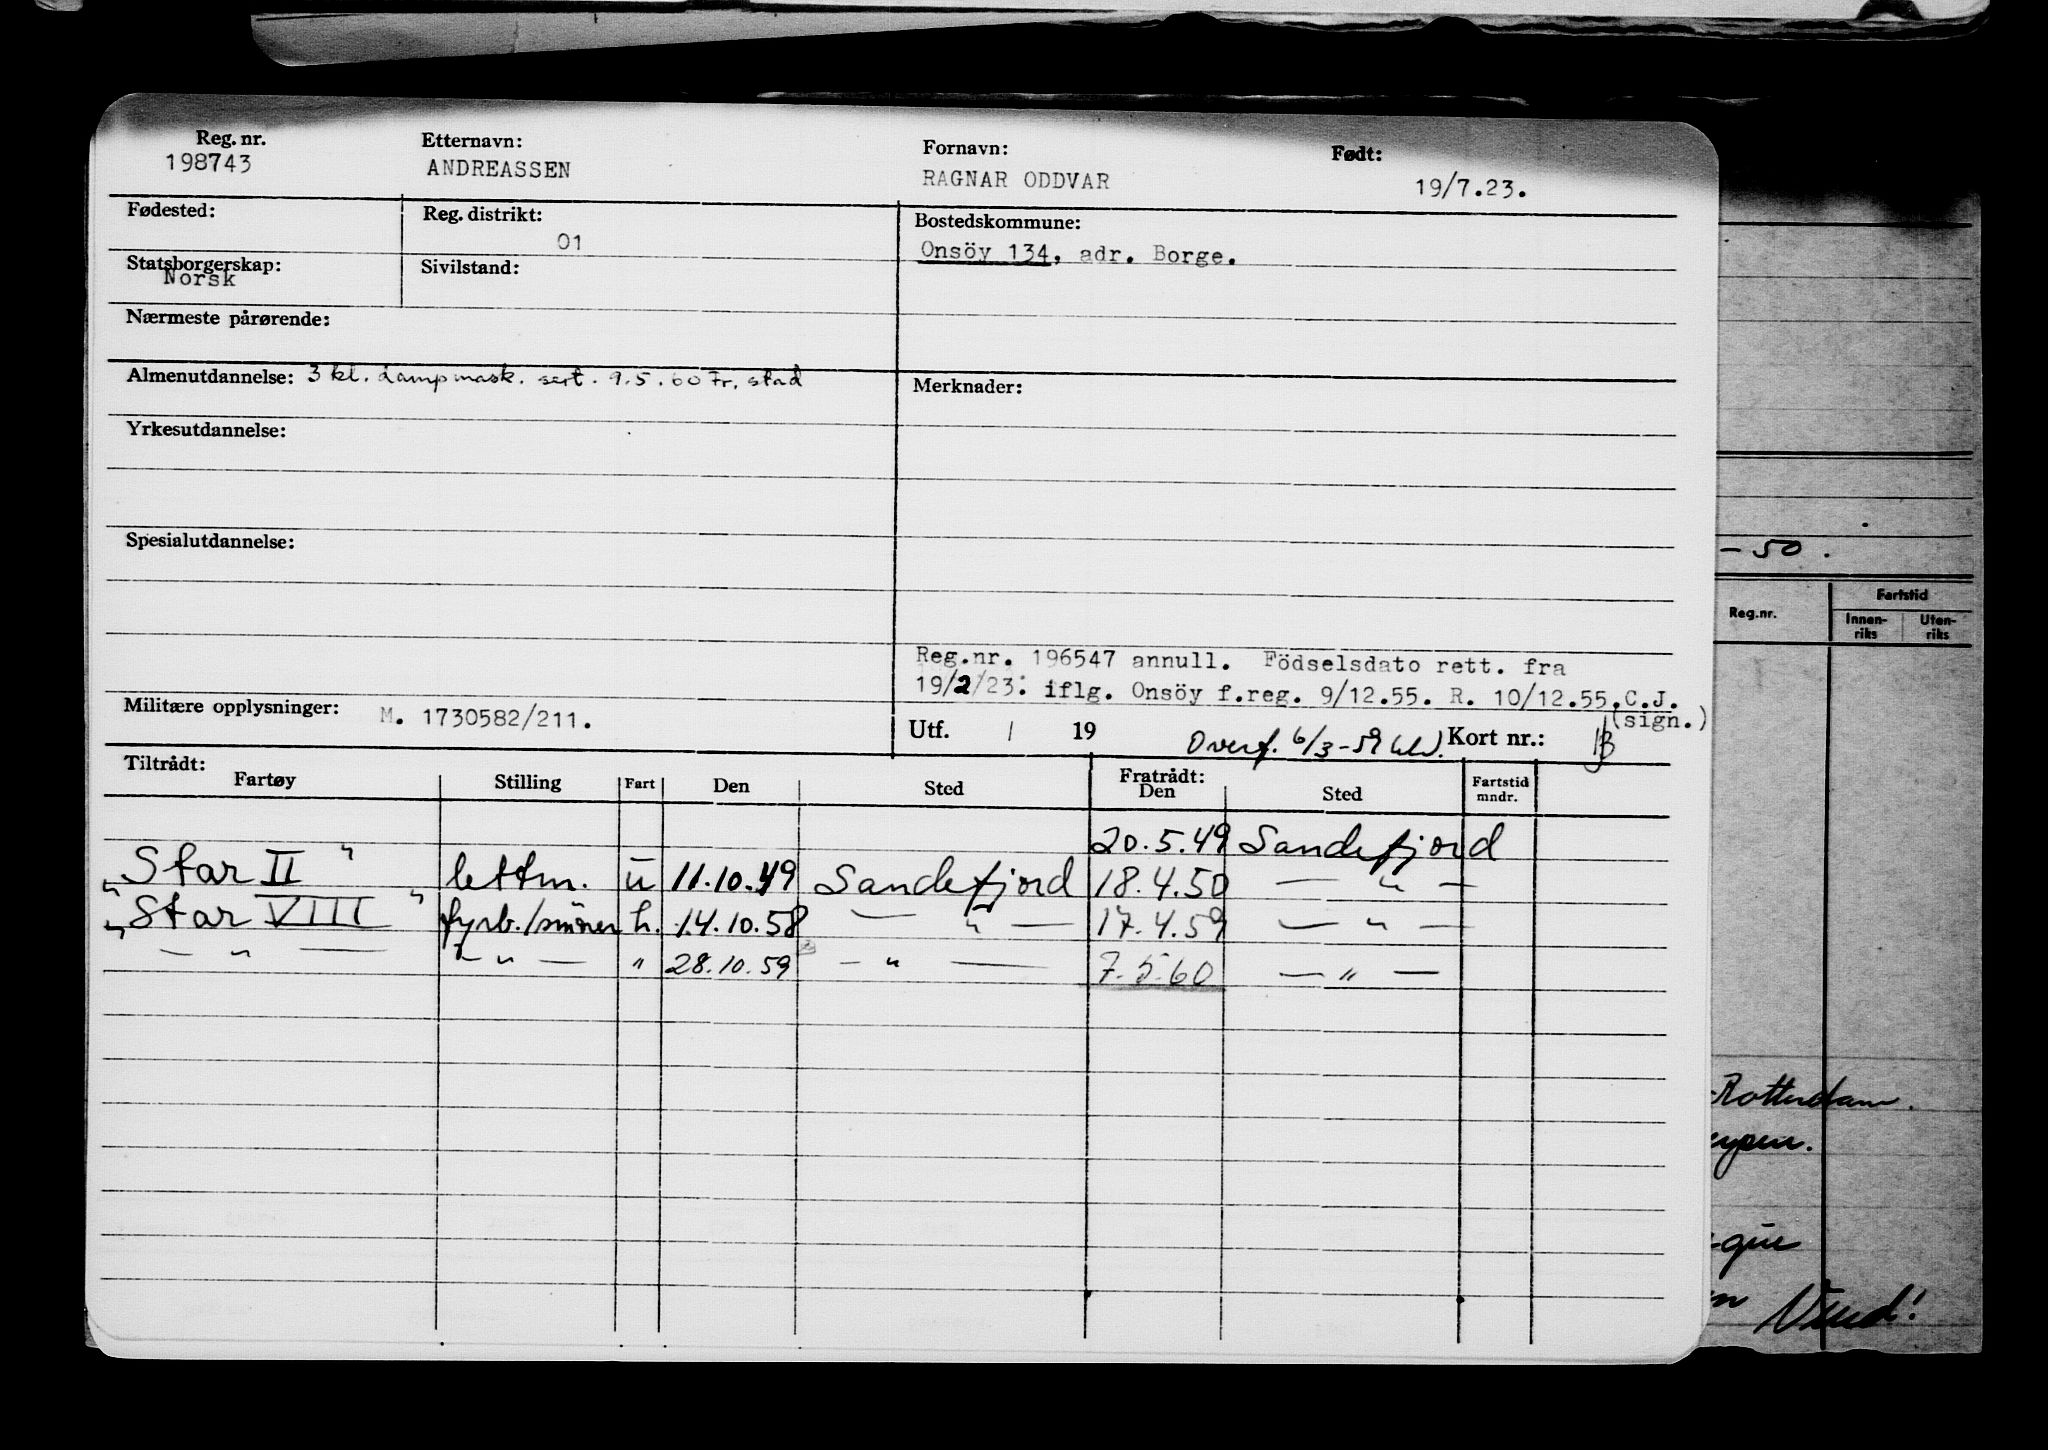 Reg. nr. Etternavn: Fornavn: Født:
198743 ANDREASSEN RAGNAR ODDVAR 19/7.23.
Fødested: Reg. distrikt: Bostedskommune:
01 Onsöy 134, adr. Borge.
Statsborgerskap: Sivilstand:
Norsk
Nærmeste pårørende:
Almenutdannelse: 3 kl. dampmask. sert. 9.5.60 Fr. stad
Merknader:
Yrkesutdannelse:
Spesialutdannelse:
Reg.nr. 196547 annull. Födselsdato rett. fra
19/2/23: iflg. Onsöy f.reg. 9/12.55. R. 10/12.55.C.J.
(sign.)
Militære opplysninger: M. 1730582/211.
Utf. / 19 Overf. 6/3-59 Kort nr.:
Tiltrådt: Fratrådt:
Fartøy Stilling Fart Den Sted Den Sted Fartstid mndr.
20.5.49 Sandefjord
"Star II" lettm. u 11.10.49 Sandefjord 18.4.50 — " —
"Star VIII" fyrb./smörer h. 14.10.58 — " — 17.4.59 — " —
— " — — " — " 28.10.59 — " — 7.5.60 — " —
- 50.
Reg.nr. Fartstid
Innen-riks Uten-riks
Rotterdam.
Vend!